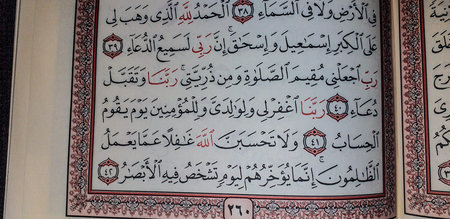 فِي ٱلْأَرْضِ وَلَا فِي ٱلسَّمَآءِ ٣٨ ٱلْحَمْدُ لِلَّهِ ٱلَّذِي وَهَبَ لِي
عَلَى ٱلْكِبَرِ إِسْمَٰعِيلَ وَإِسْحَٰقَ إِنَّ رَبِّي لَسَمِيعُ ٱلدُّعَآءِ ٣٩
رَبِّ ٱجْعَلْنِي مُقِيمَ ٱلصَّلَوٰةِ وَمِن ذُرِّيَّتِي رَبَّنَا وَتَقَبَّلْ
دُعَآءِ ٤٠ رَبَّنَا ٱغْفِرْ لِي وَلِوَٰلِدَيَّ وَلِلْمُؤْمِنِينَ يَوْمَ يَقُومُ
ٱلْحِسَابُ ٤١ وَلَا تَحْسَبَنَّ ٱللَّهَ غَٰفِلًا عَمَّا يَعْمَلُ
ٱلظَّٰلِمُونَ إِنَّمَا يُؤَخِّرُهُمْ لِيَوْمٍ تَشْخَصُ فِيهِ ٱلْأَبْصَٰرُ ٤٢
٢٦٠